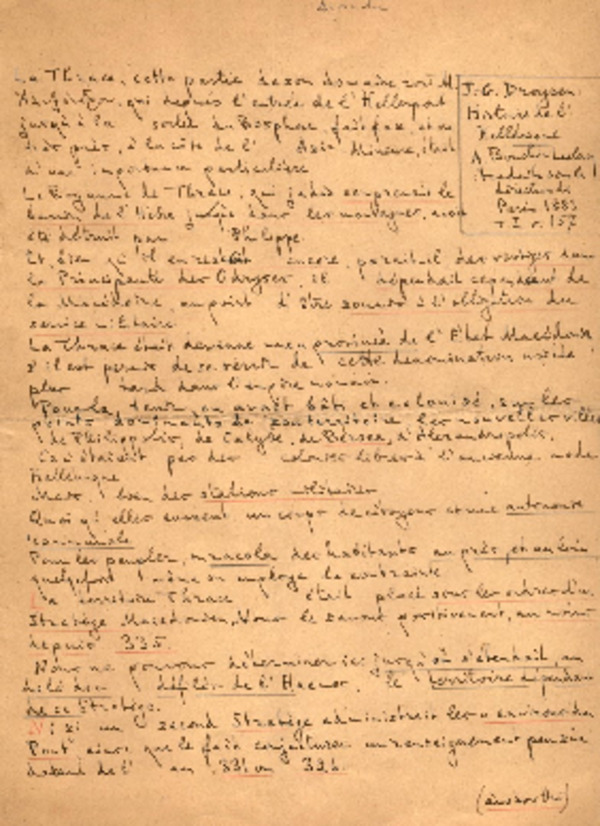 La Thrace, cette partie de son domaine
qui depuis l'entrée de l'Hellespont
jusqu'à la sortie du Bosphore
près, à la côte de l'Asie Mineure, était
d'une importance particulière
Le Royaume de Thrace, qui jadis comprenait le
bassin de l'Hèbre jusque dans les montagnes, avait
été détruit par Philippe.
Et bien qu'il en restait encore, parait-il des vestiges dans
la Principauté des Odryses, il dépendait cependant de
la Macédoine, au point d'être soumis à l'obligation du
service militaire.
La Thrace était devenue une province de l'État Macédonien
s'il est permis de se servir de cette dénomination usitée
plus tard dans l'empire romain.
Pour la tenir, on avait bâti et colonisé, sur les
points dominants de son territoire les nouvelles villes
de Philippolis, de Calybe, de Béroea, d'Alexandropolis.
étaient pas des colonies libres à l'ancienne mode
Hellénique
Mais bien des stations militaires
Quoiqu'elles eussent un corps de citoyens et une autonomie
communale
Pour les peupler, on racola des habitants au près, et au loin
quelquefois même on employa la contrainte
Le territoire Thrace était placé sous les ordres d'un
Stratège Macédonien, Nous le savons positivement, au moins
depuis 335.
Nous ne pouvons déterminer ici jusqu'où s'étendait, au
delà des défilés de l'Haemos, le territoire dépendant
de ce Stratège.
si un second Stratège administrait les environs du
Pont ainsi que le fait conjecturer un renseignement
datant de l'an 331 ou
J.G. Droysen.
Histoire de l'
Hellénisme
A. Bouché-Leclercq
traduite sous la
direction de
Paris 1883
T.I. p. 157